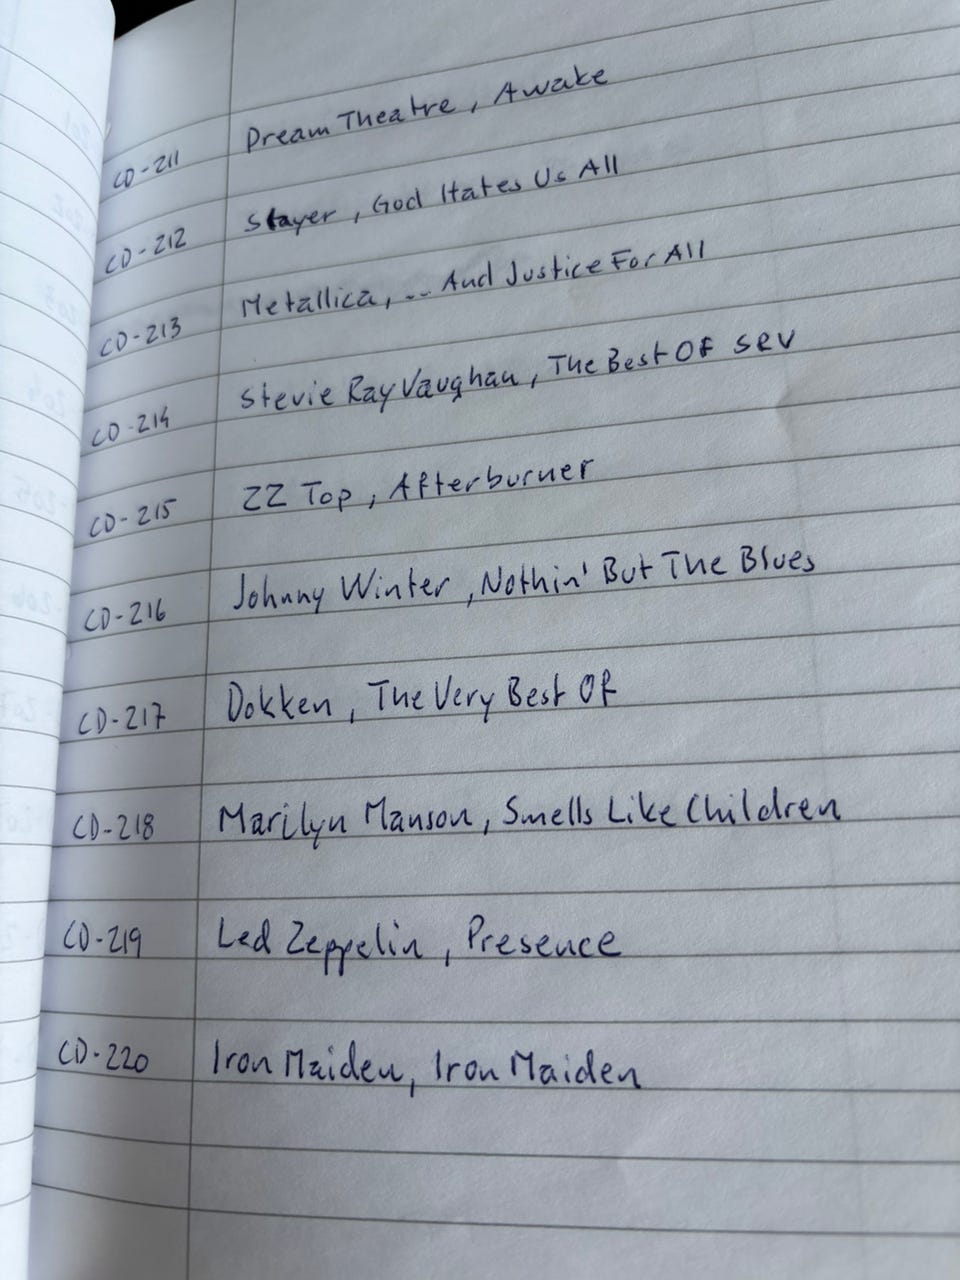 CD-211 Dream Theatre, Awake
CD-212 Slayer, God Hates Us All
CD-213 Metallica, ... And Justice For All
CD-214 Stevie Ray Vaughan, The Best Of SRV
CD-215 ZZ Top, Afterburner
CD-216 Johnny Winter, Nothin' But The Blues
CD-217 Dokken, The Very Best Of
CD-218 Marilyn Manson, Smells Like Children
CD-219 Led Zeppelin, Presence
CD-220 Iron Maiden, Iron Maiden